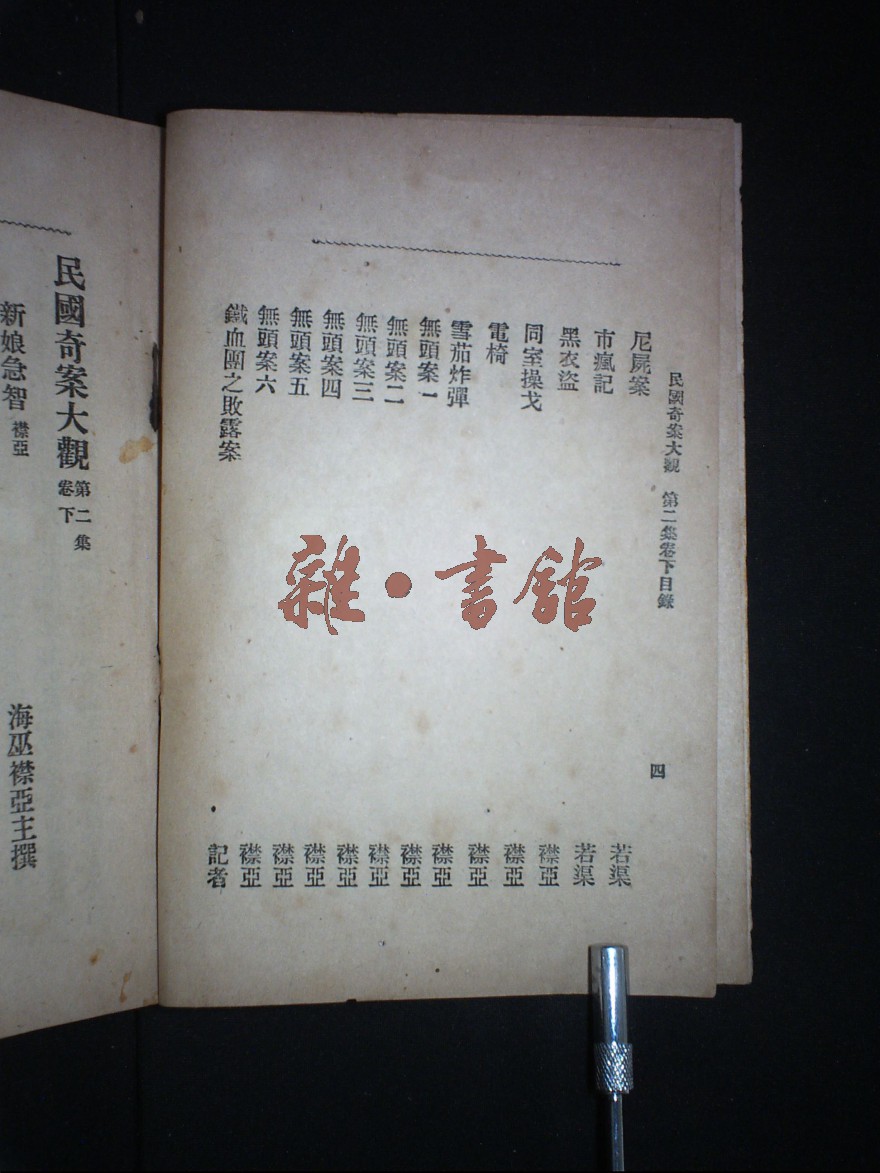 民國奇案大觀 第二集卷下目錄 四
尼屍案 若渠
市瘋記 若渠
黑衣盜 襟亞
同室操戈 襟亞
電椅 襟亞
雪茄炸彈 襟亞
無頭案一 襟亞
無頭案二 襟亞
無頭案三 襟亞
無頭案四 襟亞
無頭案五 襟亞
無頭案六 襟亞
鐵血團之敗露案 記者
民國奇案大觀 第二集 卷下
海巫襟亞主撰
新娘急智 襟亞
雜・書館